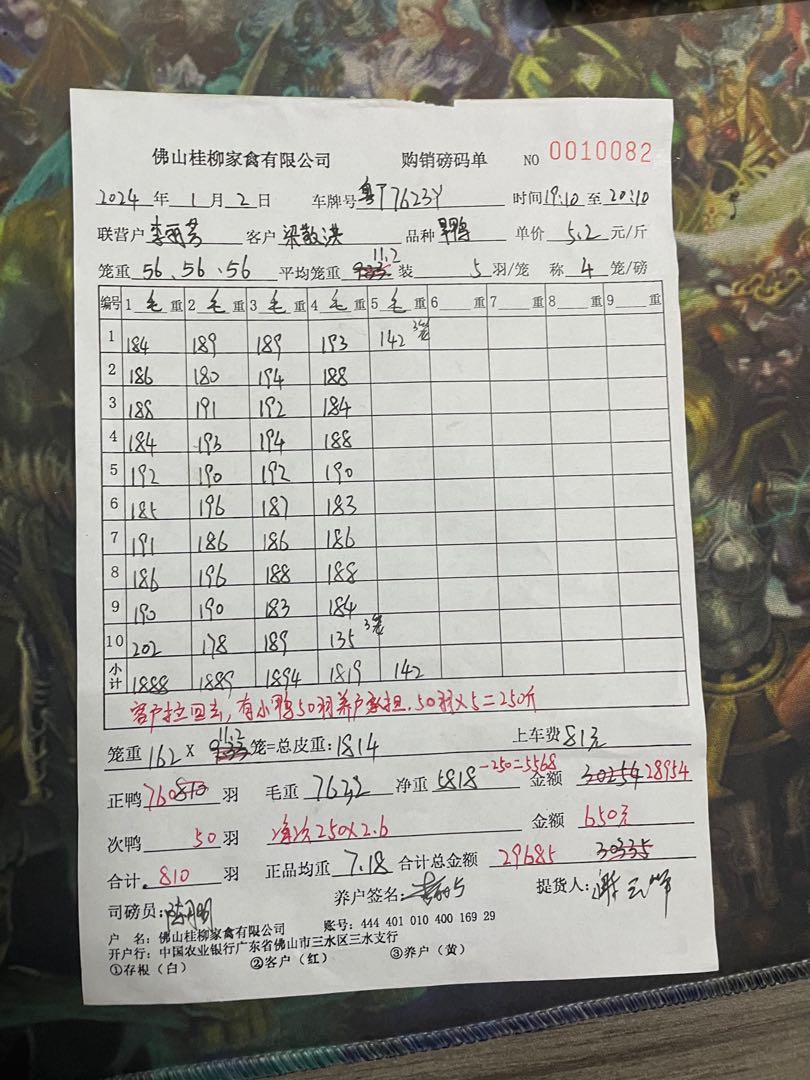 佛山桂柳家禽有限公司 购销磅码单 NO 0010082
2024 年 1 月 2 日 车牌号 粤T7623Y 时间 19:10 至 20:10
联营户 李丽芳 客户 梁敬洪 品种 旱鸭 单价 5.2 元/斤
11.2
笼重 56、56、56 平均笼重 933 装 5 羽/笼 称 4 笼/磅
编号 1 毛 重 2 毛 重 3 毛 重 4 毛 重 5 毛 重 6 重 7 重 8 重 9 重
1 184 189 189 193 142 3笼
2 186 180 194 188
3 188 191 192 184
4 184 193 194 188
5 192 190 192 190
6 185 196 187 183
7 191 186 186 186
8 186 196 188 188
9 190 190 183 184
10 202 178 189 135 3笼
小计 1888 1889 1894 1819 142
客户拉回去,有小鸭50羽养户承担.50羽×5=250斤
11.2
笼重 162 × 933 笼=总皮重: 1814 上车费 81元
正鸭 760 810 羽 毛重 7632 净重 5818 -250=5568 金额 30254 28954
次鸭 50 羽 净次250×2.6 金额 650元
合计 810 羽 正品均重 7.18 合计总金额 29685 30335
司磅员: 养户签名: 提货人:
户 名: 佛山桂柳家禽有限公司 账号: 444 401 010 400 169 29
开户行: 中国农业银行广东省佛山市三水区三水支行
①存根(白) ②客户(红) ③养户(黄)